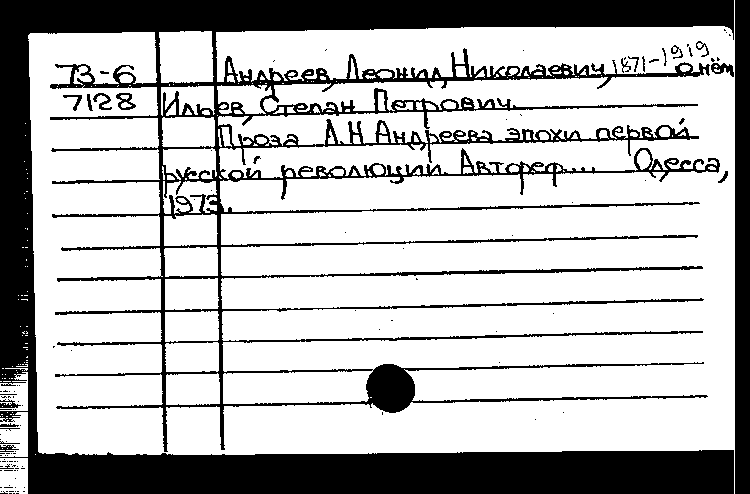 73-6 Андреев, Леонид Николаевич, 1871-1919 о нём
7128 Ильев, Степан Петрович.
Проза Л.Н. Андреева эпохи первой
русской революции. Автореф.... Одесса,
1973.